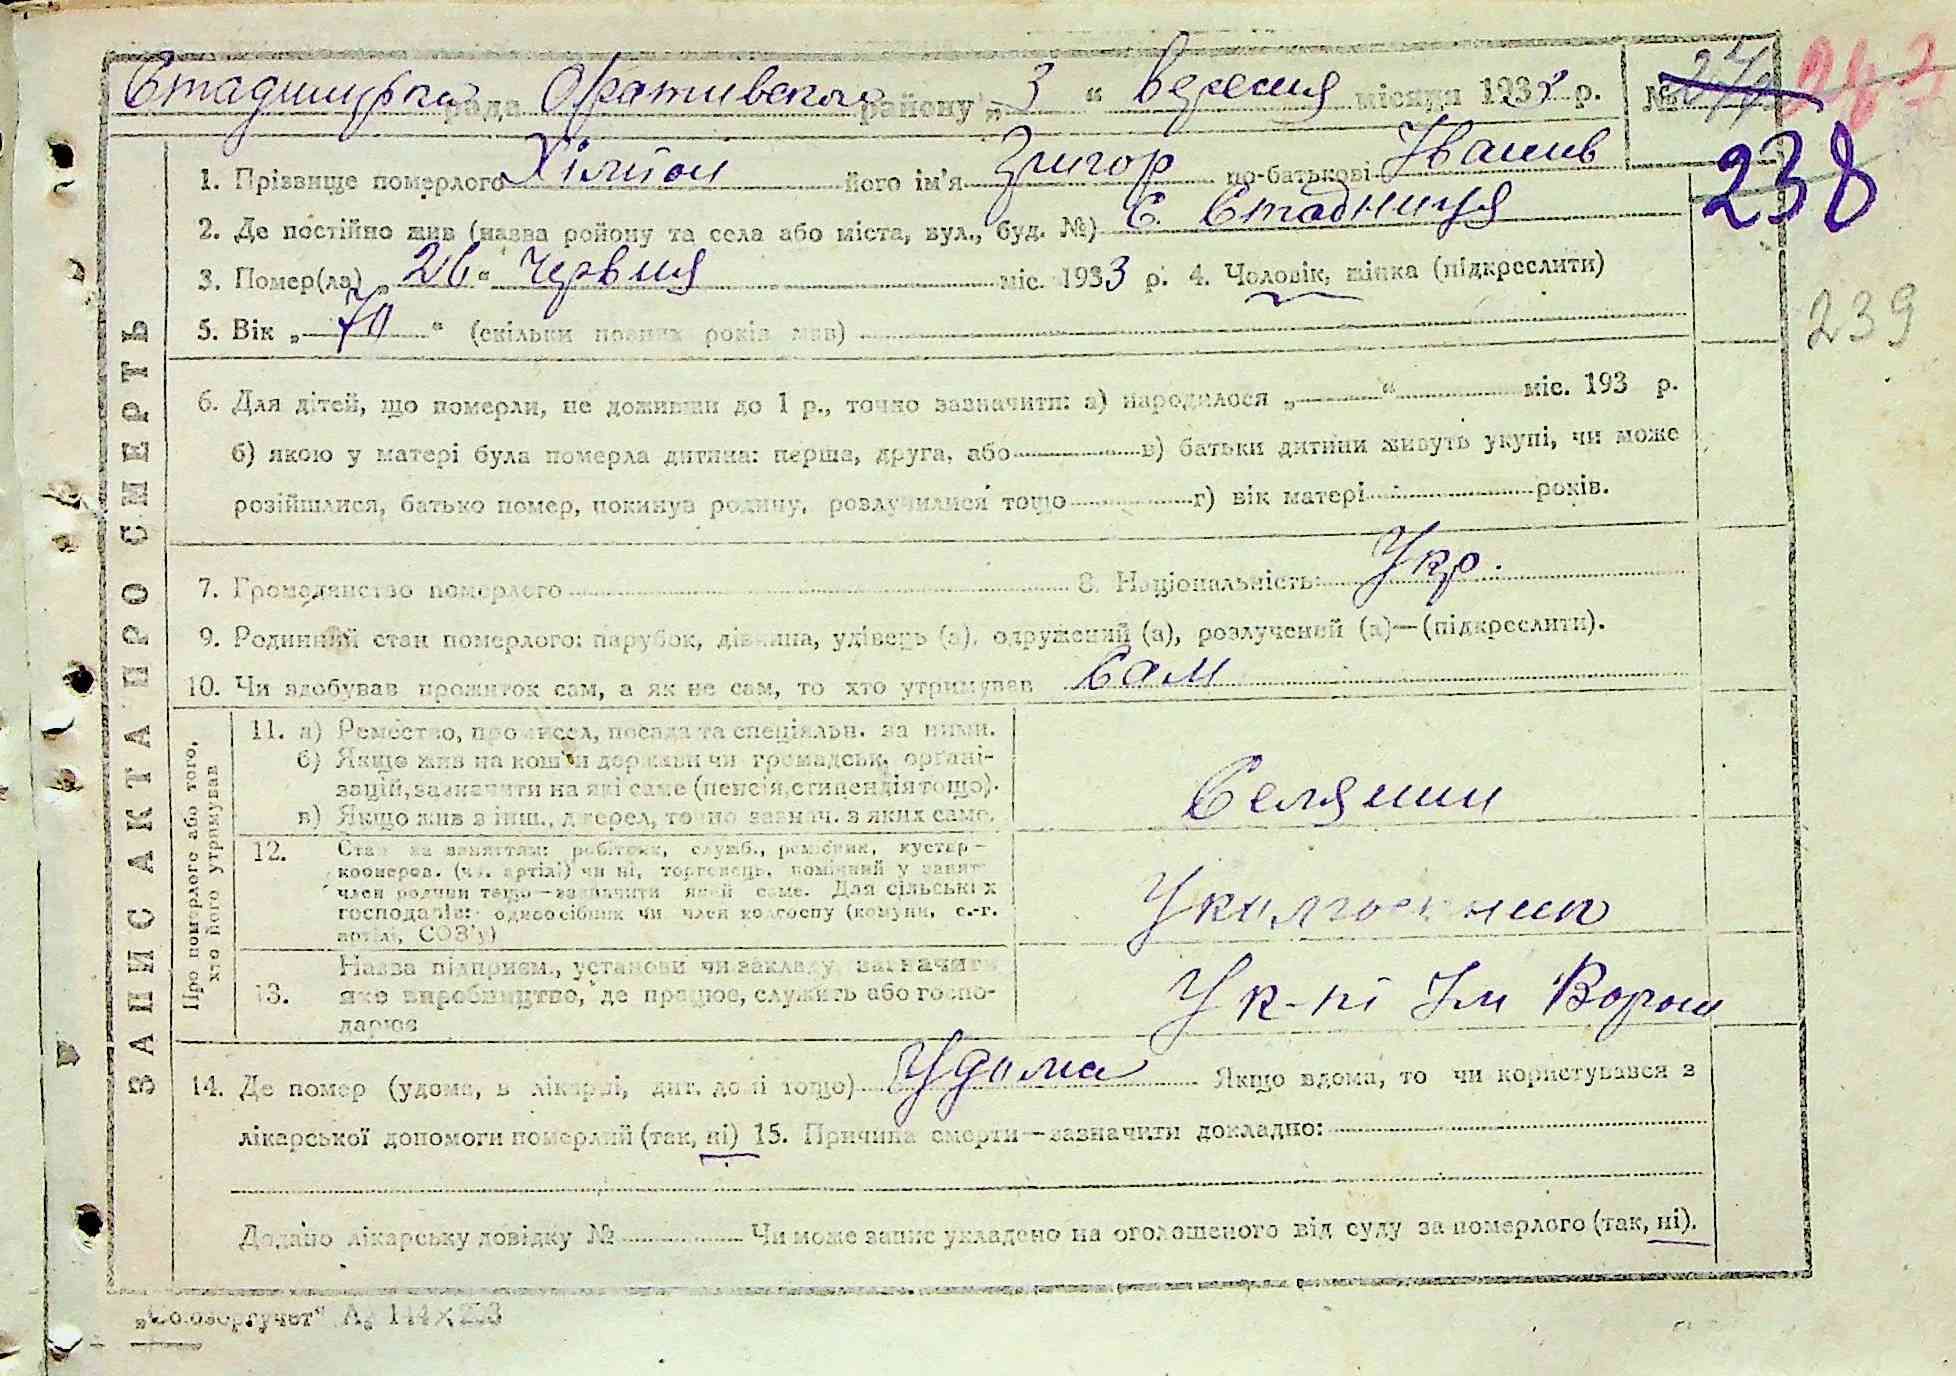 Стадницька рада Оратівського району „ 3 “ Вересня місяця 1933 р. № 247 287
238
1. Прізвище померлого його ім'я Григор по-батькові Іванов
2. Де постійно жив (назваройону та села або міста, вул., буд. №) С. Стадниця
3. Помер(ла) „ 26 “ Червня міс. 1933 р. 4. Чоловік, жінка (підкреслити)
239
5. Вік „ 70 “ (скільки повних років мав)
6. Для дітей, що померли, не доживши до 1 р., точно зазначити: а) народилося „ “ міс. 193 р.
б) якою у матері була померла дитина: перша, друга, або в) батьки дитини живуть укупі, чи може
розійшлися, батько помер, покинув родину, розлучилися тощо г) вік матері років.
7. Громадянство померлого 8. Національність: Укр.
9. Родинний стан померлого: парубок, дівчина, удівець (а), одружений (а), розлучений (а)—(підкреслити).
10. Чи здобував прожиток сам, а як не сам, то хто утримував Сам
ЗАПИС АКТА ПРО СМЕРТЬ
Про померлого або того,
хто його утримував
11. а) Ремество, промисел, посада та спеціяльн. за ними.
б) Якщо жив на кошти держави чи громадськ. органі-
зацій, зазначити на які саме (пенсія, стипендія тощо).
в) Якщо жив з інш. джерел, точно зазнач. з яких саме.
Селянин
12. Стан за заняттям: робітник, служб., ремісник, кустар—
кооперов. (чл. артілі) чи ні, торговець, помічний у занят.
член родини тощо—зазначити який саме. Для сільських
господарів: одноосібник чи член колгоспу (комуни, с.-г.
артілі, СОЗ'у)
У колгоспник
13. Назва підприєм., установи чи закладу, зазначити
яке виробництво, де працює, служить або госпо-
дарює
У к-пі Ім Ворош
14. Де помер (удома, в лікарні, дит. домі тощо) Удома Якщо вдома, то чи користувався з
лікарської допомоги померлий (так, ні) 15. Причина смерти—зазначити докладно:
Додано лікарську довідку № Чи може запис укладено на оголошеного від суду за померлого (так, ні).
„Союзоргучет“ А₅ 144×203